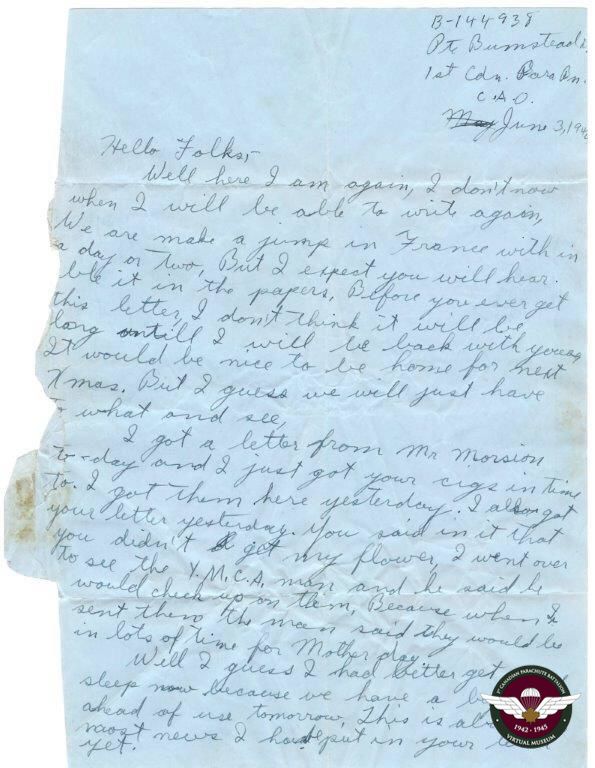 B-144938
Pte Bumstead
1st Cdn. Para Bn.
C.A.O.
May June 3, 194
Hello Folks,-
Well here I am again, I don't now
when I will be able to write again,
We are make a jump in France with in
a day or two, But I expect you will hear
it in the papers, Before you ever get
this letter, I don't think it will be
long untill I will be back with you
It would be nice to be home for next
Xmas. But I guess we will just have
what and see,
I got a letter from Mr Morsion
to-day and I just got your cigs in time
to. I got them here yesterday. I also got
your letter yesterday. You said in it that
you didn't get my flower, I went over
to see the Y.M.C.A. man and he said he
would check up on them, Because when I
sent them the man said they would be
in lots of time for Mother day.
Well I guess I had better get
sleep now because we have a
ahead of use tomorrow, This is
most news I have put in your
yet.
1ST CANADIAN PARACHUTE BATTALION
1942 - 1945
VIRTUAL MUSEUM